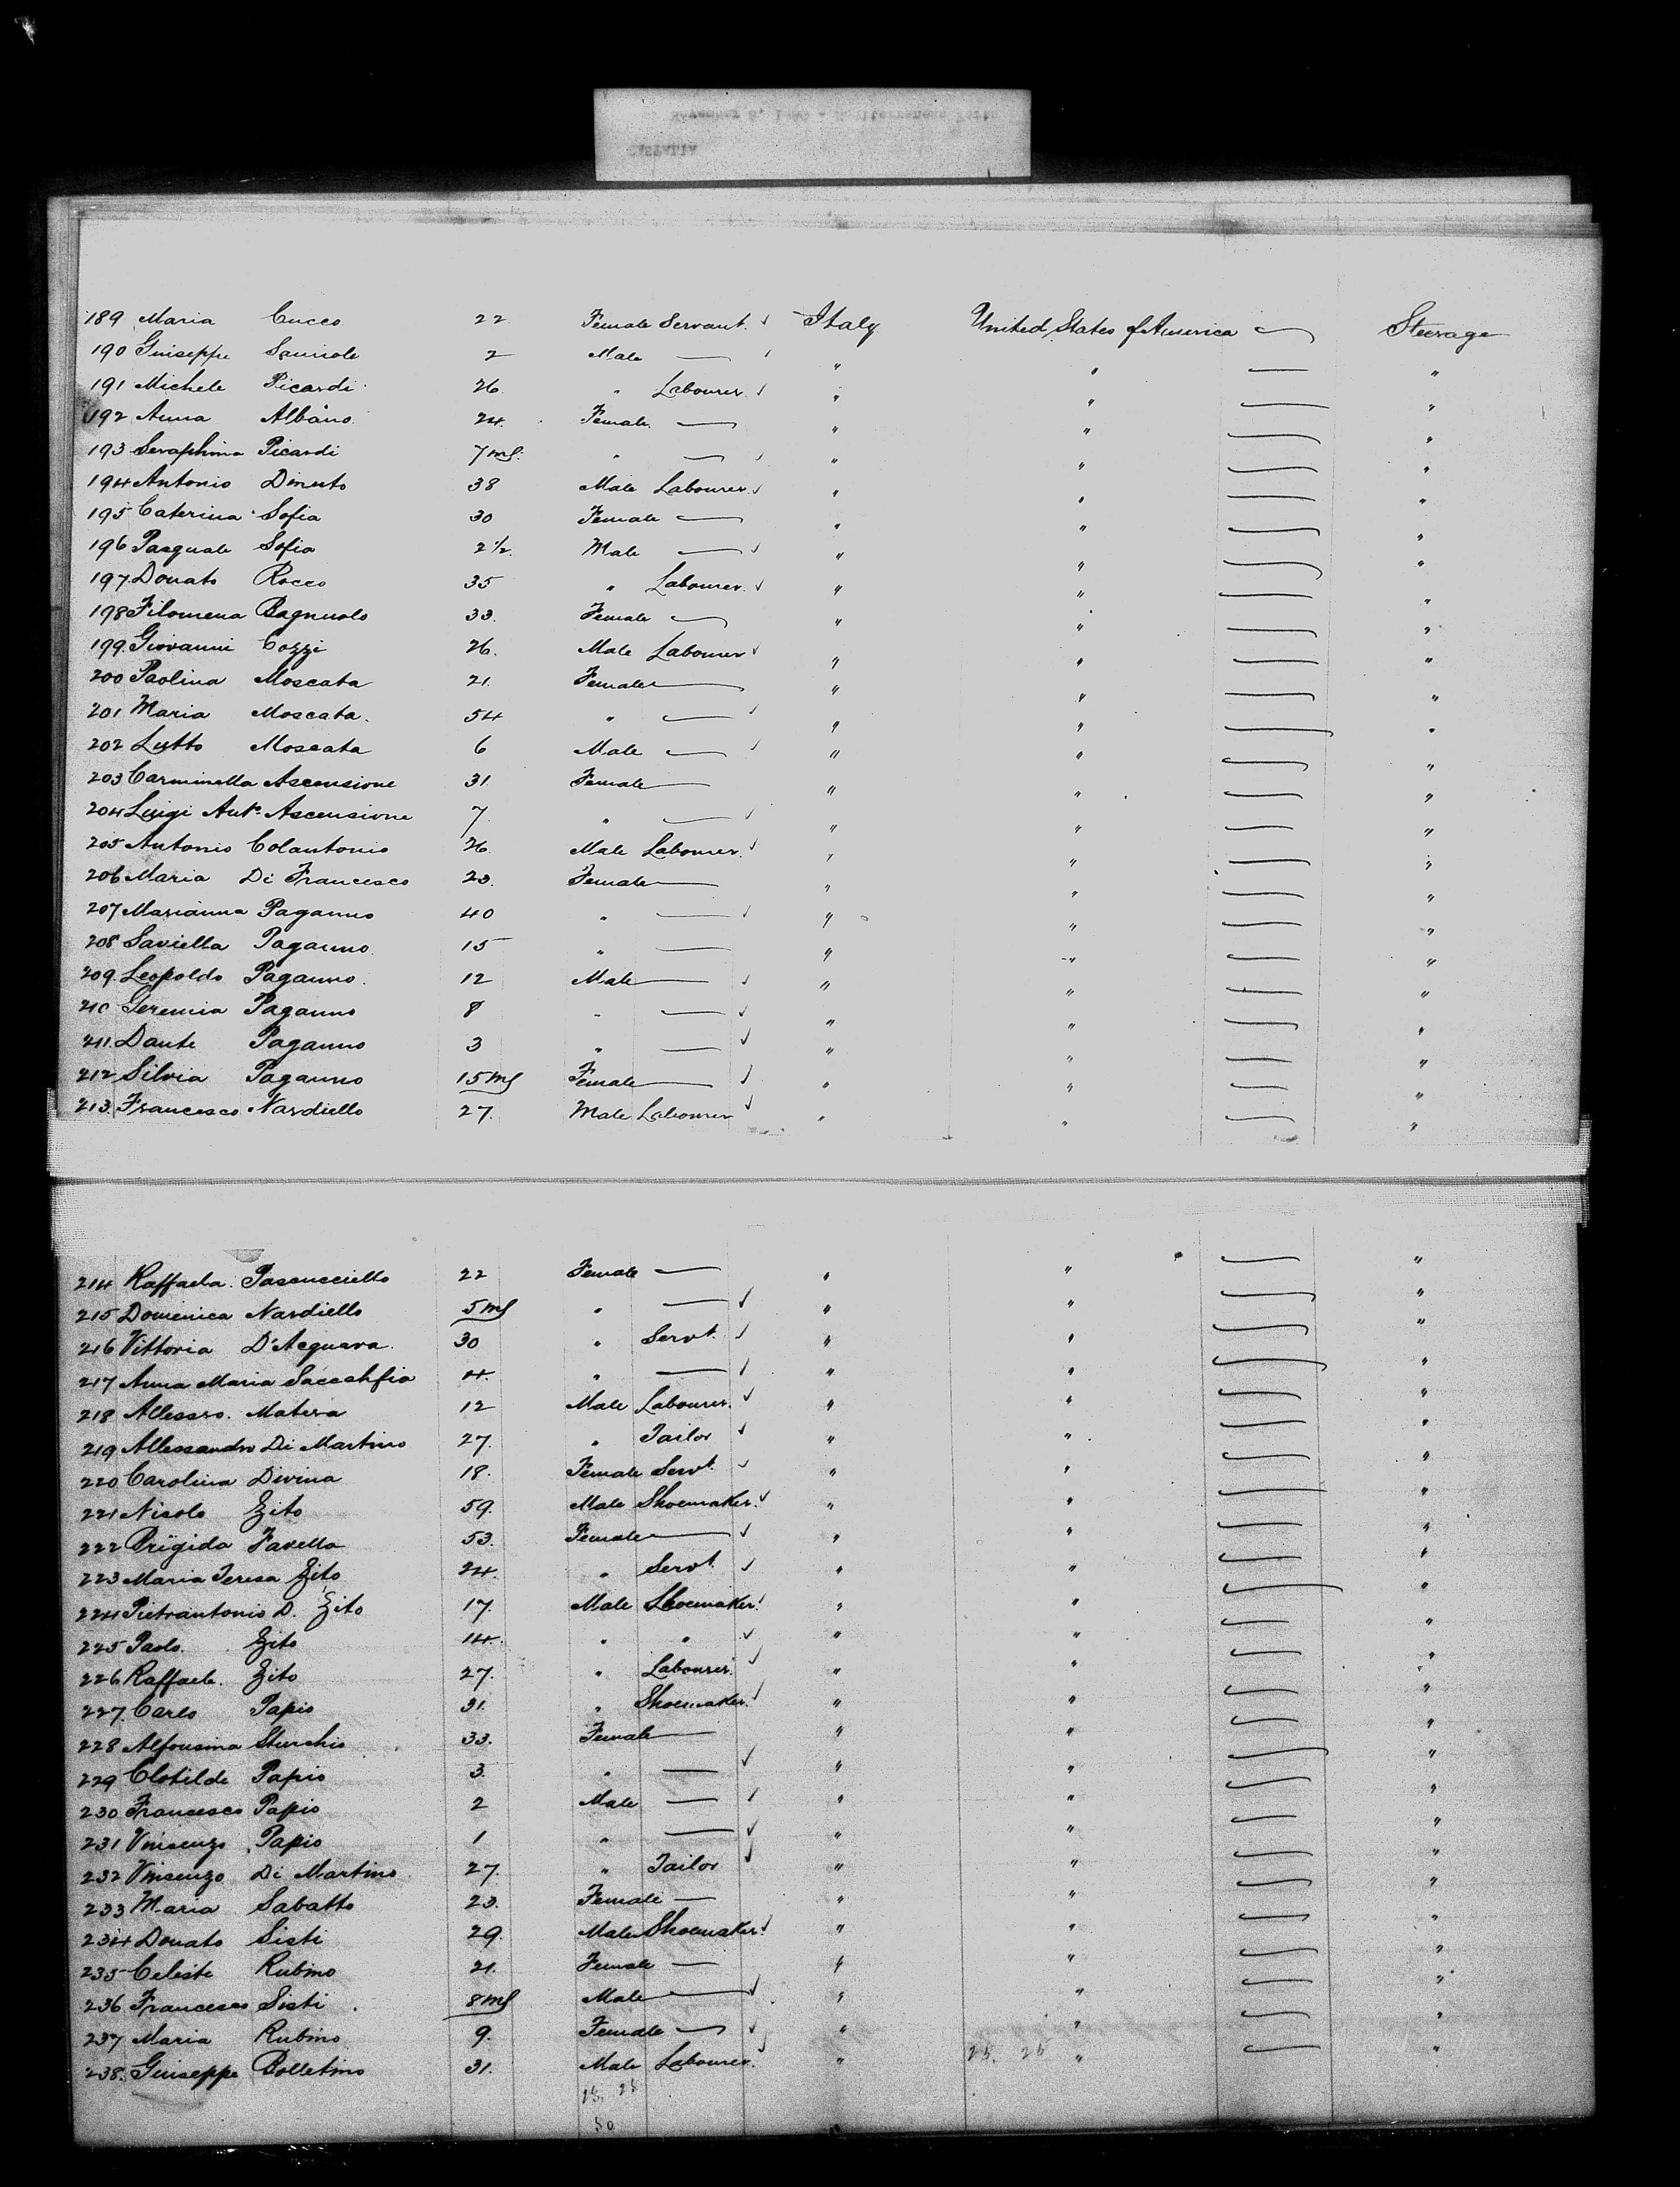 189 Maria Cucco 22 Female Servant. ✓ Italy United States of America Steerage
190 Guiseppe 2 Male — ✓ " " — "
191 Michele Picardi 26 " Labourer ✓ " " — "
192 Anna Albano 24. Female. — " " — "
193 Seraphina Picardi 7 ms. " — ✓ " " — "
194 Antonio Dinuto 38 Male Labourer ✓ " " — "
195 Caterina Sofia 30 Female — " " — "
196 Pasquale Sofia 2 1/2. Male — ✓ " " — "
197 Donato Rocco 35 " Labourer. ✓ " " — "
198 Filomena Bagnuolo 33. Female — " " — "
199. Giovanni Cozzi 26. Male Labourer ✓ " " — "
200 Paolina Moscata 21. Female — " " — "
201 Maria Moscata. 54 " — ✓ " " — "
202 Moscata 6 Male — ✓ " " — "
203 Carminella Ascensione 31. Female — " " — "
204 Luigi Ant° Ascensione 7 " — ✓ " " — "
205 Antonio Colantonio 26. Male Labourer. ✓ " " — "
206 Maria Di Francesco 23. Female — " " — "
207 Marianna Paganno 40 " — ✓ " " — "
208 Saviella Paganno 15 " — " " — "
209. Leopoldo Paganno. 12 Male — ✓ " " — "
210 Geremia Paganno 8 " — ✓ " " — "
211. Dante Paganno 3 " — ✓ " " — "
212 Silvia Paganno 15 ms Female — ✓ " " — "
213. Francesco Nardiello 27. Male Labourer ✓ " " — "
214 Raffaela. Pascucciello 22 Female — " " — "
215 Domenica Nardiello 5 ms " — ✓ " " — "
216 Vittoria D'Acquara. 30 " Servt. ✓ " " — "
217 Anna Maria 4. " — ✓ " " — "
218 Allessro. Matera 12 Male Labourer. ✓ " " — "
219 Allessandro Di Martino 27. " Tailor ✓ " " — "
220 Carolina Divina 18. Female Servt. ✓ " " — "
221 Nicolo Zito 59. Male Shoemaker. ✓ " " — "
222 Brigida Favella 53. Female — ✓ " " — "
223 Maria Teresa Zito 24. " Servt. ✓ " " — "
224 Pietrantonio D. Zito 17. Male Shoemaker. ✓ " " — "
225 Paolo. Zito 14. " " ✓ " " — "
226 Raffaele. Zito 27. " Labourer. ✓ " " — "
227. Carlo Papio 31. " Shoemaker. ✓ " " — "
228 Alfonsina Sturchio 33. Female — " " — "
229 Clotilde Papio 3. " — ✓ " " — "
230 Francesco Papio 2 Male — ✓ " " — "
231 Vincenzo Papio 1 " — ✓ " " — "
232 Vincenzo Di Martino 27. " Tailor ✓ " " — "
233 Maria Sabatto 23. Female — " " — "
234 Donato Sisti 29. Male Shoemaker. ✓ " " — "
235 Celeste Rubino 21. Female — " " — "
236 Francesco Sisti 8 ms Male — ✓ " " — "
237 Maria Rubino 9. Female — ✓ " " — "
238. Guiseppe Bolletino 31. Male Labourer. ✓ " 25. 25 " — "
25. 25
50